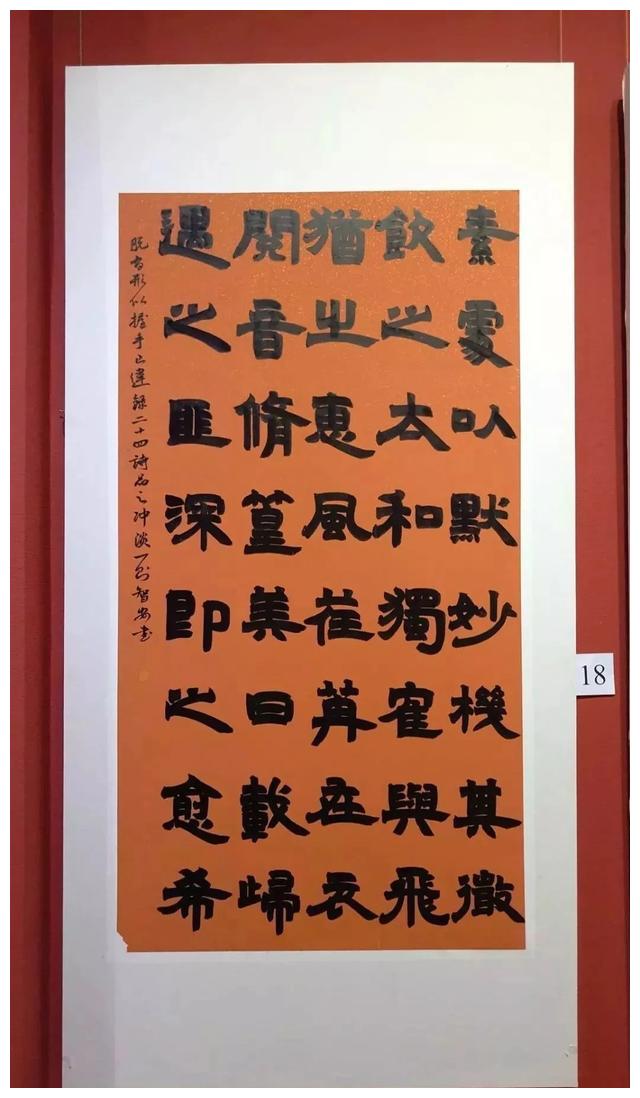 素處以默妙機其微
飲之太和獨寉與飛
猶之惠風荏苒在衣
閱音脩篁美曰載歸
遇之匪深即之愈希
脫有形似握手已違錄二十四詩品之冲淡一則智安書
18